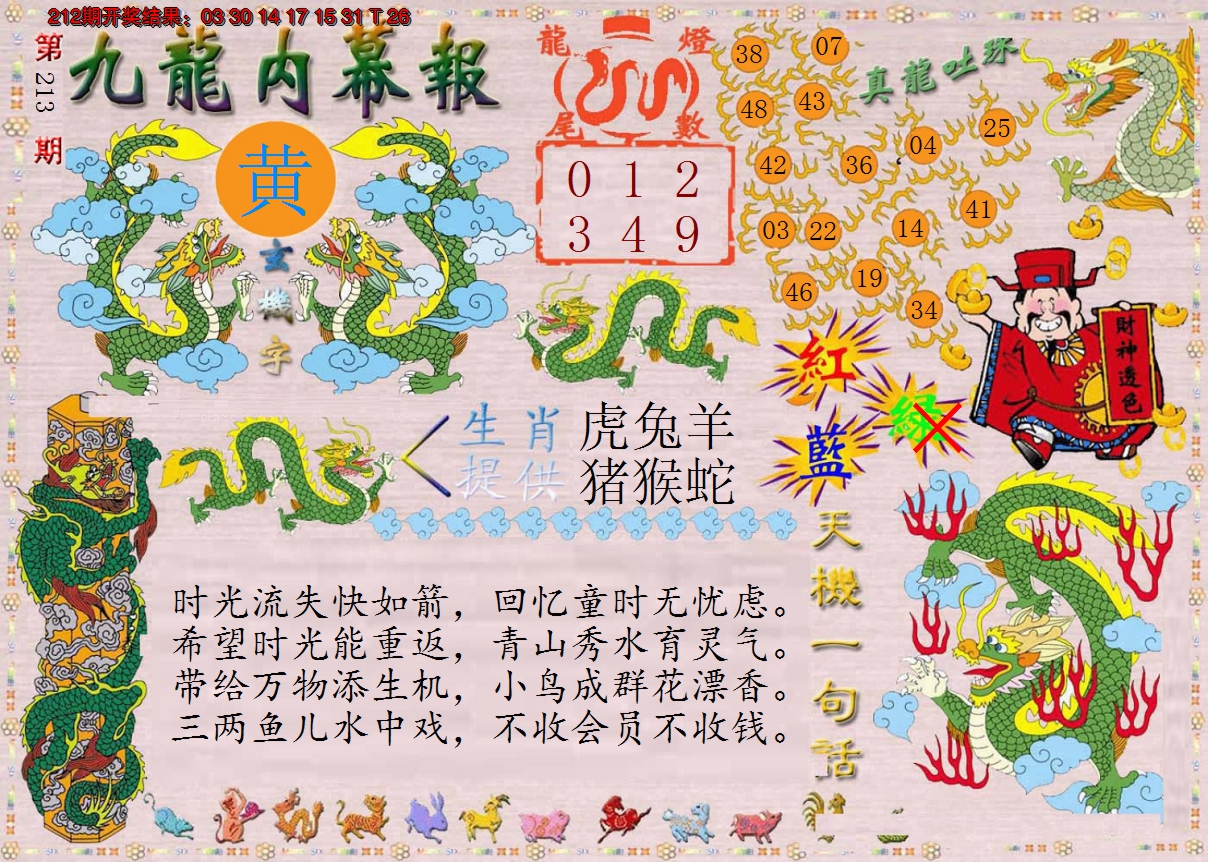 212期开奖结果：03 30 14 17 15 31 T 26
第213期
九龍内幕報
黄
玄機字
龍燈
尾數
0 1 2
3 4 9
真龍吐珠
38
07
48
43
25
04
42
36
41
03
22
14
19
46
34
財神透色
紅
綠
藍
生肖 虎兔羊
提供 猪猴蛇
天機一句话
时光流失快如箭，回忆童时无忧虑。
希望时光能重返，青山秀水育灵气。
带给万物添生机，小鸟成群花漂香。
三两鱼儿水中戏，不收会员不收钱。